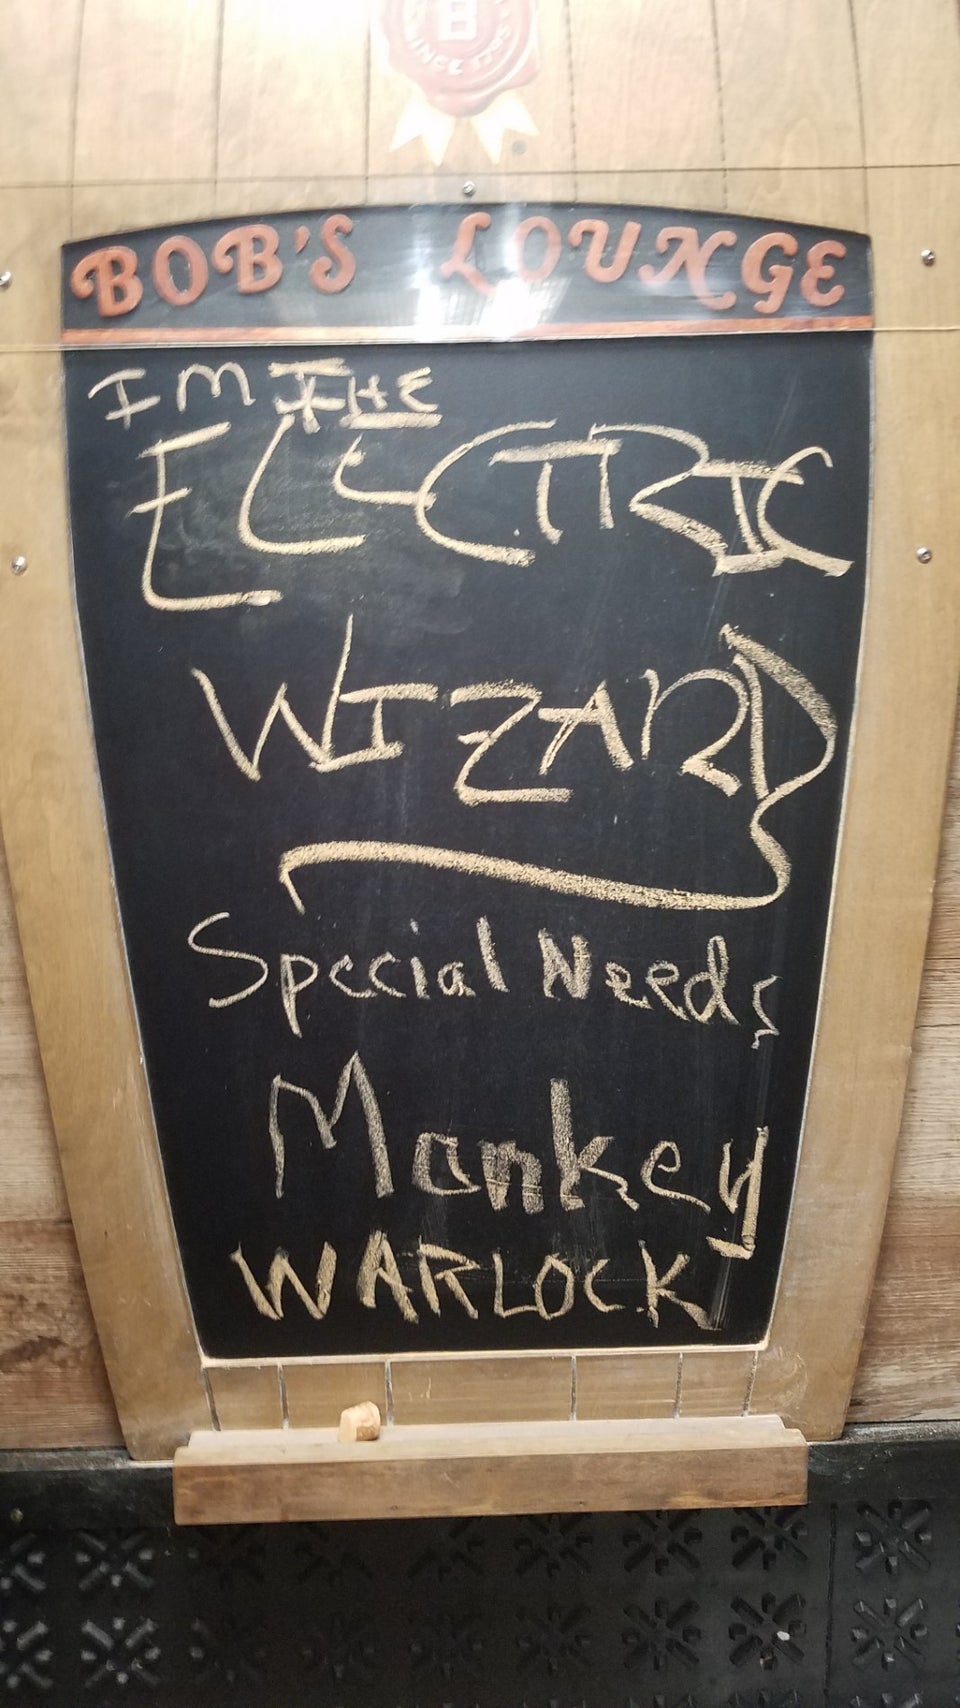 B
SINCE 1795
BOB'S LOUNGE
I'M THE
ELECTRIC
WIZARD
Special Needs
Monkey
WARLOCK